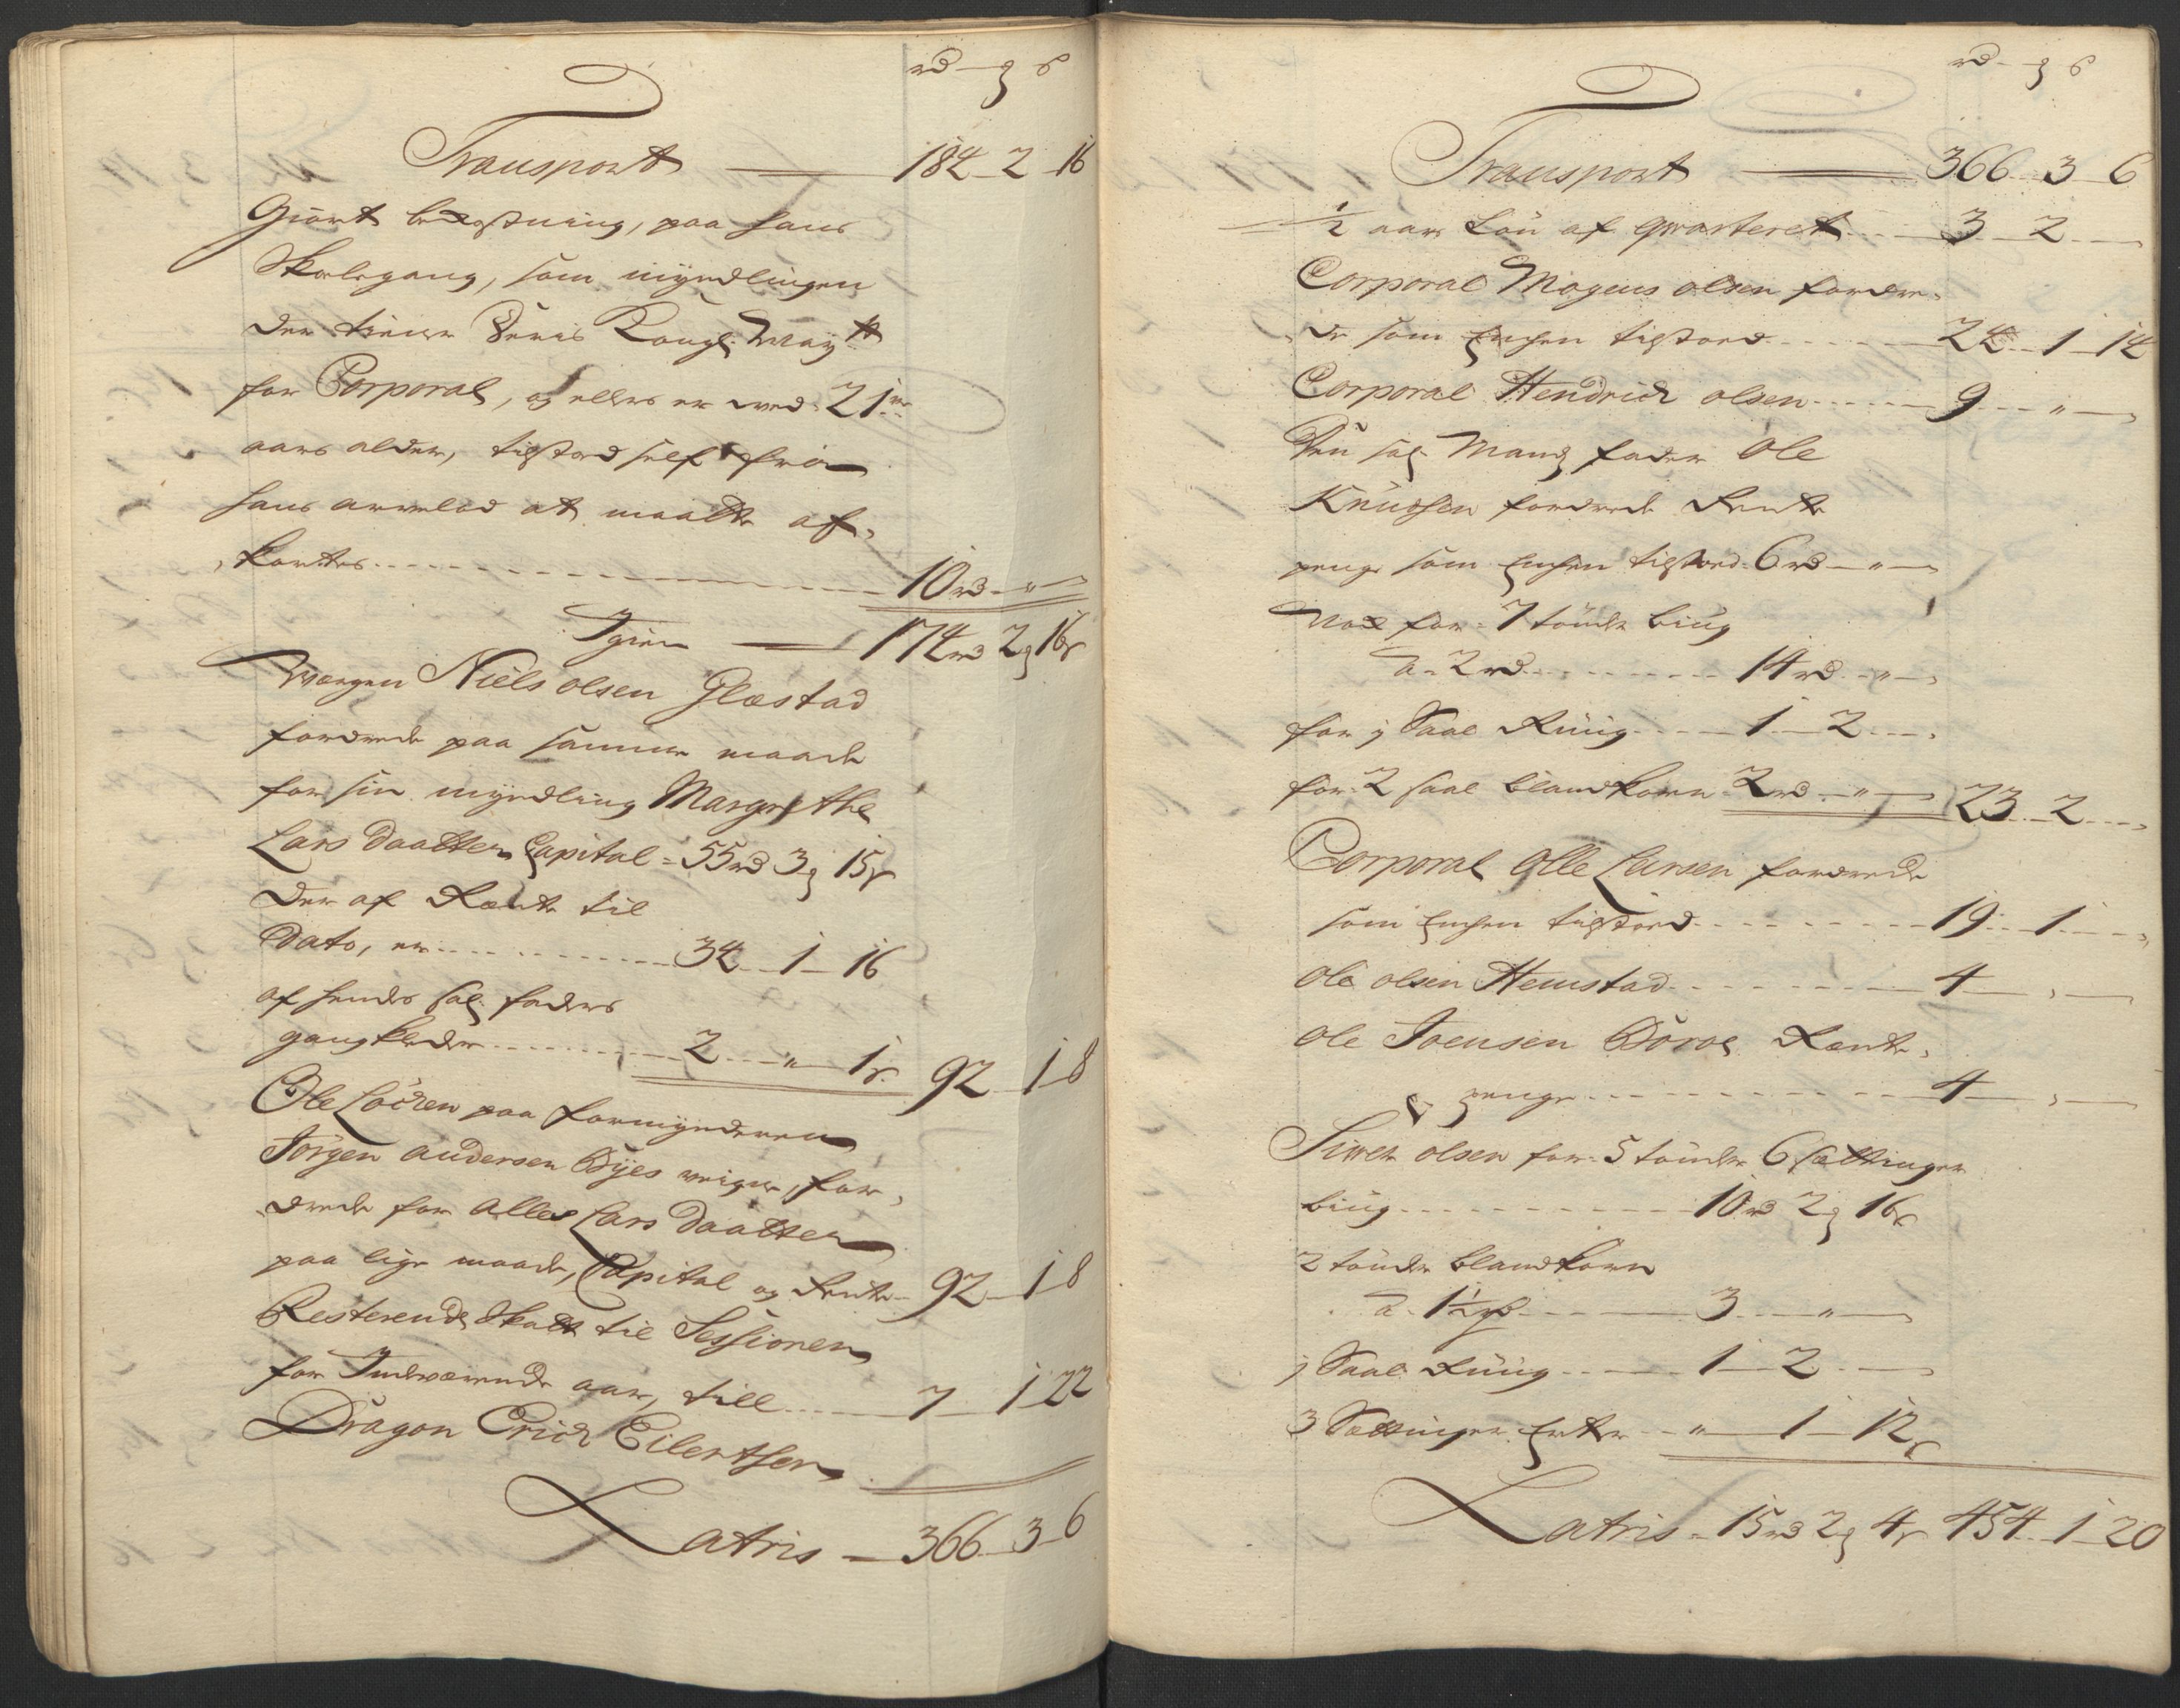 rd - ß
Transport 184 - 2 - 16
Giort bekostning, paa hans
Skolegang, som myndlingen
der tiener Deris Kongl. May.tt
for Corporal, og ellers er ved 21 ve
aars alder, tilstod self fra
hans arvelod at maatte af-
kortes 10 rd - " -
Igien 174 rd 2 16 ß
Wærgen Niels olsen Glæstad
fordrede paa samme maade
for sin myndling Margrethe
Lars Daatter Capital = 55 rd 3 15 ß
der af Rente til
Dato, er 34 - 1 - 16
af hendes Sal. faders
gangkleder 2 - " - 1 ß 92 - 1 - 8
Ole paa formynderen
Jörgen andersen Byes veigne, for-
drede for Lars Daatter
paa lige maade, Capital og Rente 92 - 1 - 8
Resterende Skatt til Sessionen
for Indeværende aar, till 7 - 1 - 22
Dragon Erich Eilertsen
Latris - 366 - 3 - 6
rd - ß
Transport 366 - 3 - 6
½ aars Lön af qvarteret 3 - 2 -
Corporal Mogens olsen fordre-
de som Enchen tilstoed 24 - 1 - 14
Corporal Hendrich olsen 9 - " -
Den Sal. Mands fader Ole
Knudsen fordrede Rente
penge som Enchen tilstoed 6 rd - " -
Nok for 7 tönde biug
a 2 rd 14 rd - " -
for j Saal Ruug 1 - 2 -
for 2 saal blandkorn 2 rd - " - 23 - 2 -
Corporal Olle Larsen fordrede
som Enchen tilstoed 19 - 1 -
Ole olsen Hemstad 4 - " -
Ole Joensen Rente-
penge 4 - " -
Siver olsen for 5 tönder 6 Sættinger
biug 10 rd 2 16 ß
2 tönder blandkorn
a 1½ rd 3 - " -
j Saal Ruug 1 - 2 -
3 Sættinger Erter " - 1 - 12 ß
Latris - 15 rd 2 4 ß 454 - 1 - 20